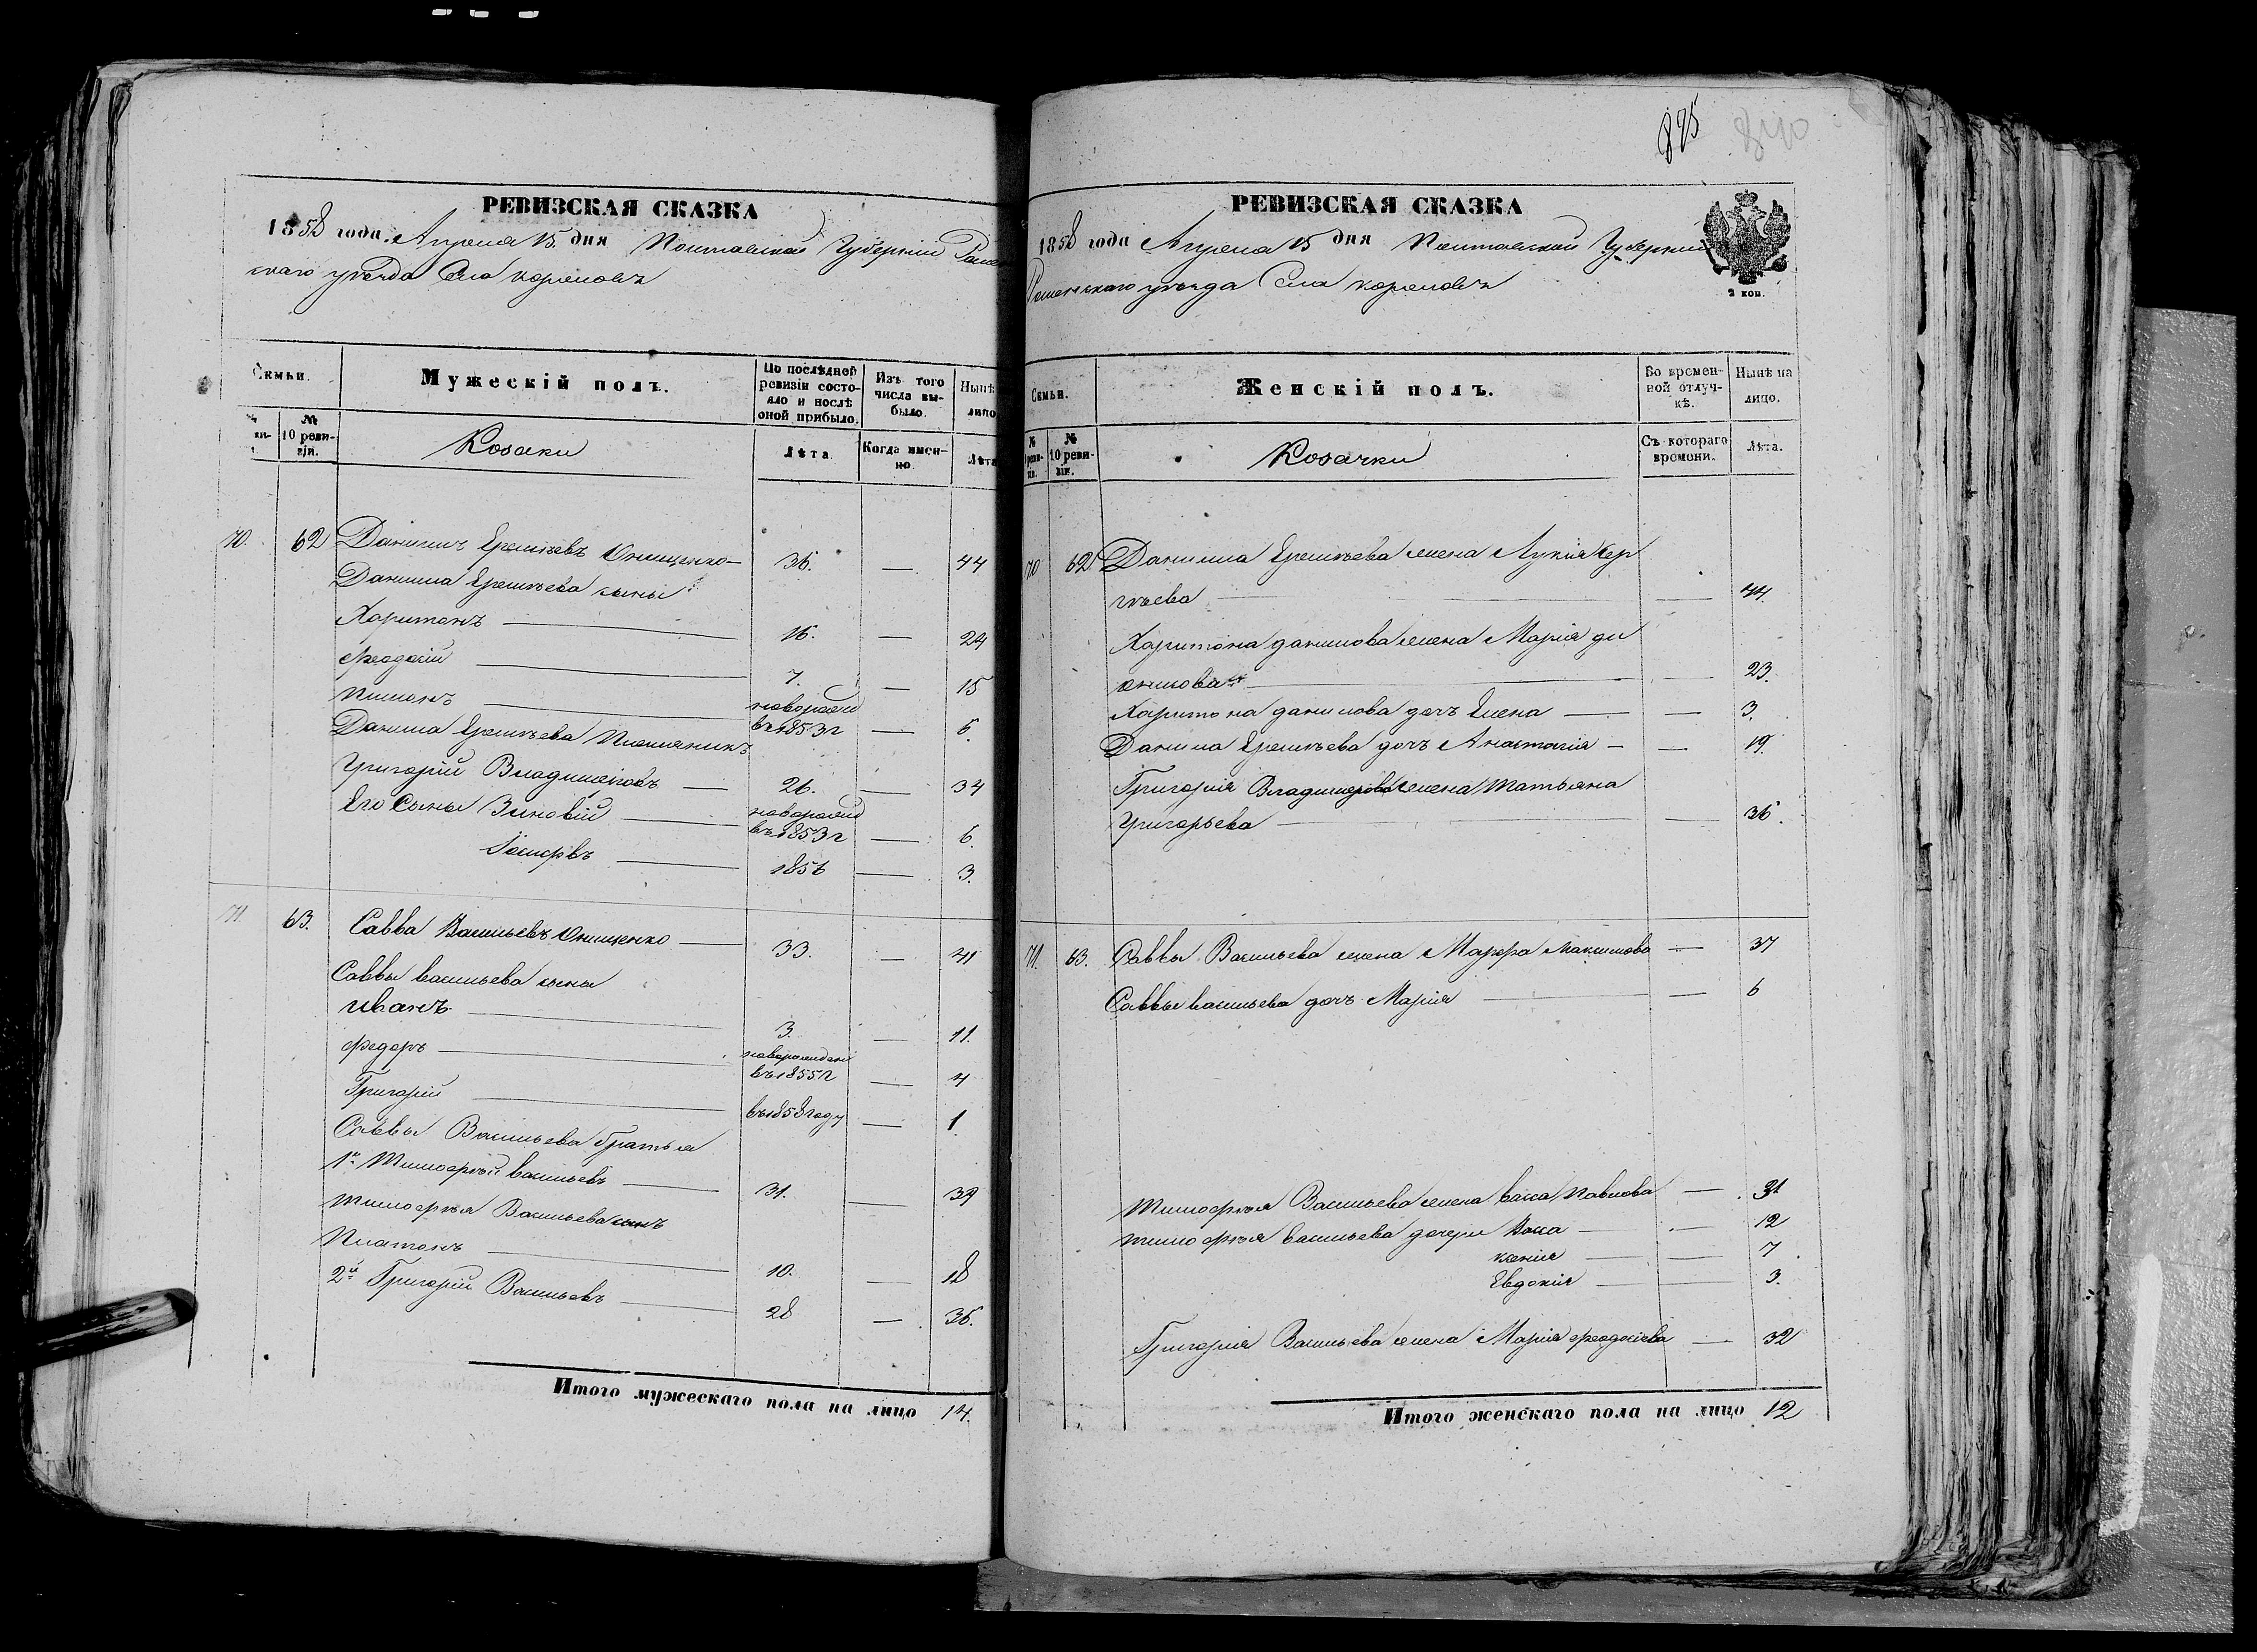 РЕВИЗСКАЯ СКАЗКА
1858 года Апреля 15 дня Полтавской Губернiи Роме
скаго уѣзда Села
Семьи.
Мужескiй полъ.
По послѣдней ревизiи состояло и послѣ оной прибыло.
Изъ того числа выбыло.
Нынѣ
лицо
№ 10 ревизiи.
Козаки
Лѣта
Когда именно.
Лѣта
70. 62 Данiилъ Еремѣевъ Онищенко 36. — 44
Данiила Еремѣева сыны:
Харитонъ — 16. — 24
Феодосiй — 7. — 15
новорожд
въ 1853 г — 6.
Данiила Еремѣева Племянникъ
Григорiй Владимеровъ — 26. — 34
Его Сыны Зиновiй — новорожд
въ 1853 г — 6.
Iосифъ — 1856 — 3.
71. 63. Савва Васильевъ Онищенко — 33. — 41
Саввы Васильева сыны
Иванъ — 3. — 11.
Федоръ — новорожден
въ 1855 г — 4
Григорiй — въ 1858 году — 1
Саввы Васильева братья
1й Тимофѣй Васильевъ — 31. — 39
Тимофѣя Васильева сынъ
Платонъ — 10. — 18
2й Григорiй Васильевъ — 28 — 36.
Итого мужескаго пола на лицо 14.
895
840
РЕВИЗСКАЯ СКАЗКА
1858 года Апреля 15 дня Полтавской Губернiи
Роменскаго уѣзда Села
2 коп.
Семьи.
Женскiй полъ.
Во временной отлучкѣ.
Нынѣ на лицо.
№ 10 ревизiи.
Козачки
Съ котораго времени.
Лѣта.
70 62 Данiила Еремѣева жена Лукiя Сер
гѣева — — 44.
Харитона Данилова жена Марiя Ди
— — 23.
Харитона Данилова дочь Елена — — 3.
Данiила Еремѣева дочь Анастасiя — — 19.
Григорiя Владимерова жена Татьяна
Григорьева — — 36.
71. 63. Саввы Васильева жена Марфа Максимова — 37
Саввы Васильева дочь Марiя — — 6
Тимофѣя Васильева жена Васса Павлова — 31
Тимофѣя Васильева дочери Васса — — 12
Ксенiя — — 7
Евдокiя — — 3.
Григорiя Васильева жена Марiя Феодосiева — 32
Итого женскаго пола на лицо 12